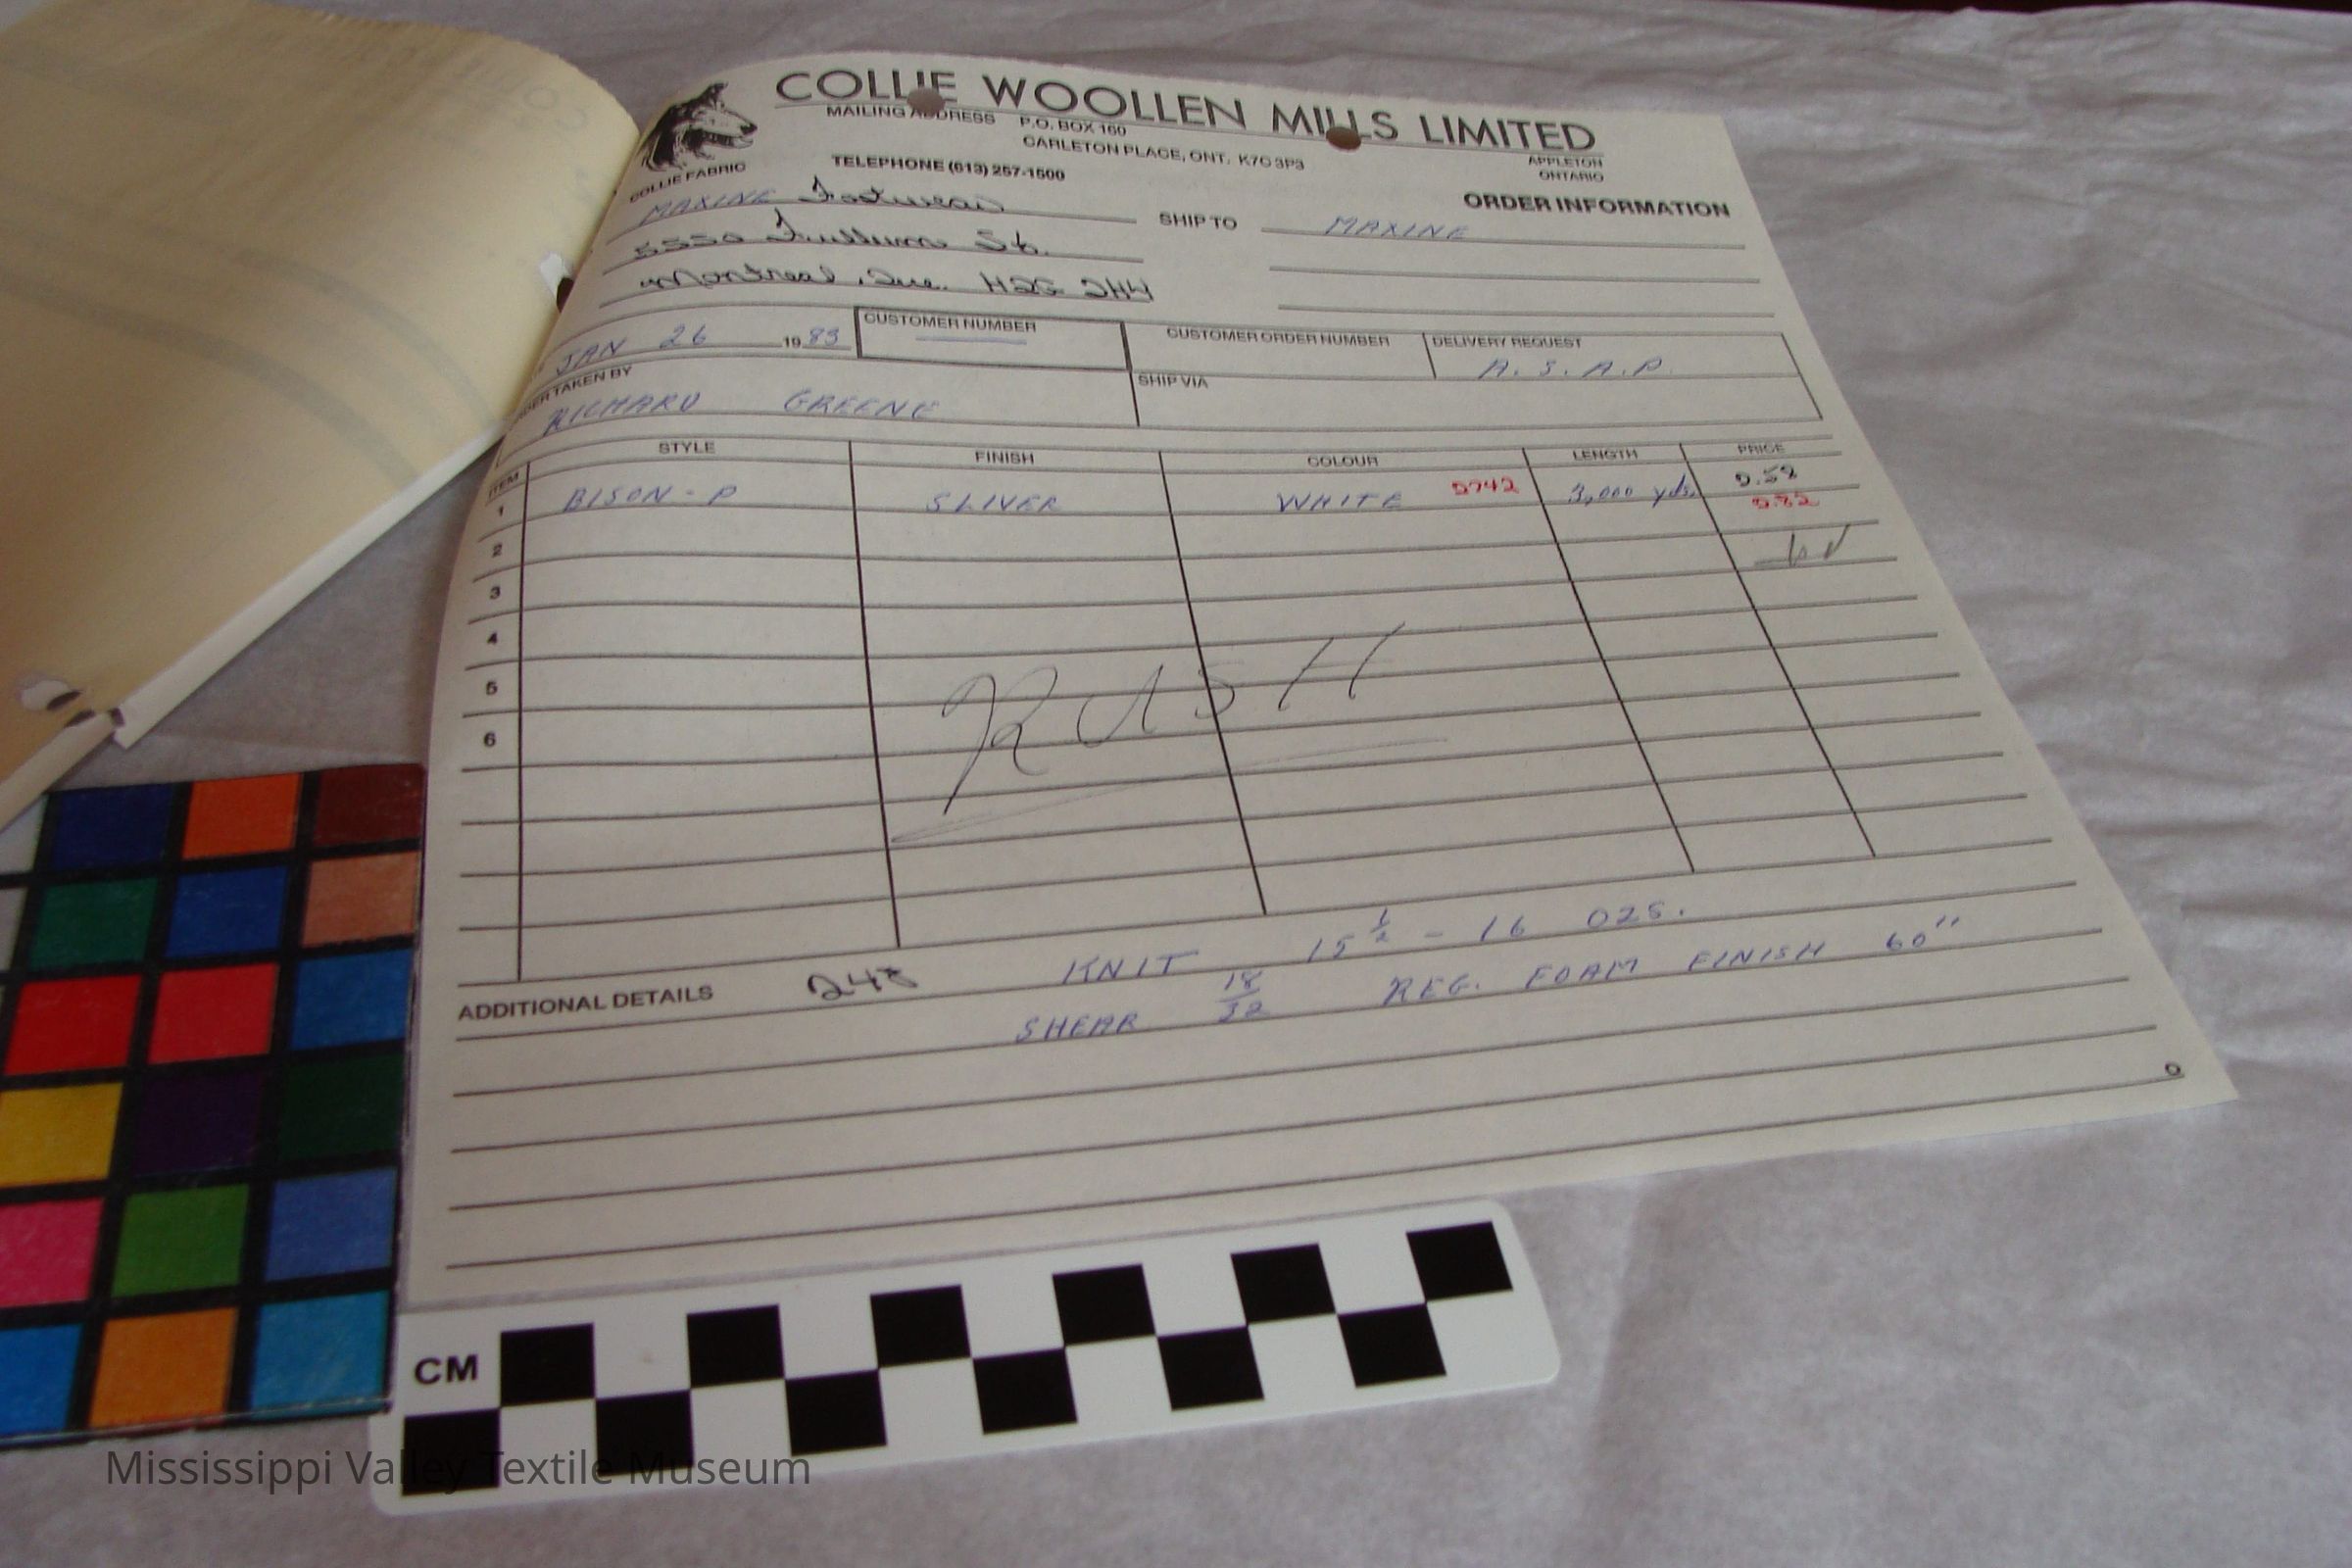 COLLIE WOOLLEN MILLS LIMITED
MAILING ADDRESS P.O. BOX 160
CARLETON PLACE, ONT. K7C 3P3
APPLETON
ONTARIO
TELEPHONE (613) 257-1500
COLLIE FABRIC
ORDER INFORMATION
MAXINE Footwear
SHIP TO MAXINE
5550 Fullum St.
Montreal, Que. H2G 2H4
JAN 26 1983
CUSTOMER NUMBER
CUSTOMER ORDER NUMBER
DELIVERY REQUEST
A.S.A.P.
TAKEN BY
RICHARD GREENE
SHIP VIA
ITEM STYLE FINISH COLOUR LENGTH PRICE
1 BISON-P SLIVER WHITE 5742 3,000 yds.
5.82
2
3
4
5
6
RUSH
ADDITIONAL DETAILS 248 KNIT 15 1/2 - 16 OZS.
SHEAR 18/32 REG. FOAM FINISH 60"
CM
Mississippi Valley Textile Museum